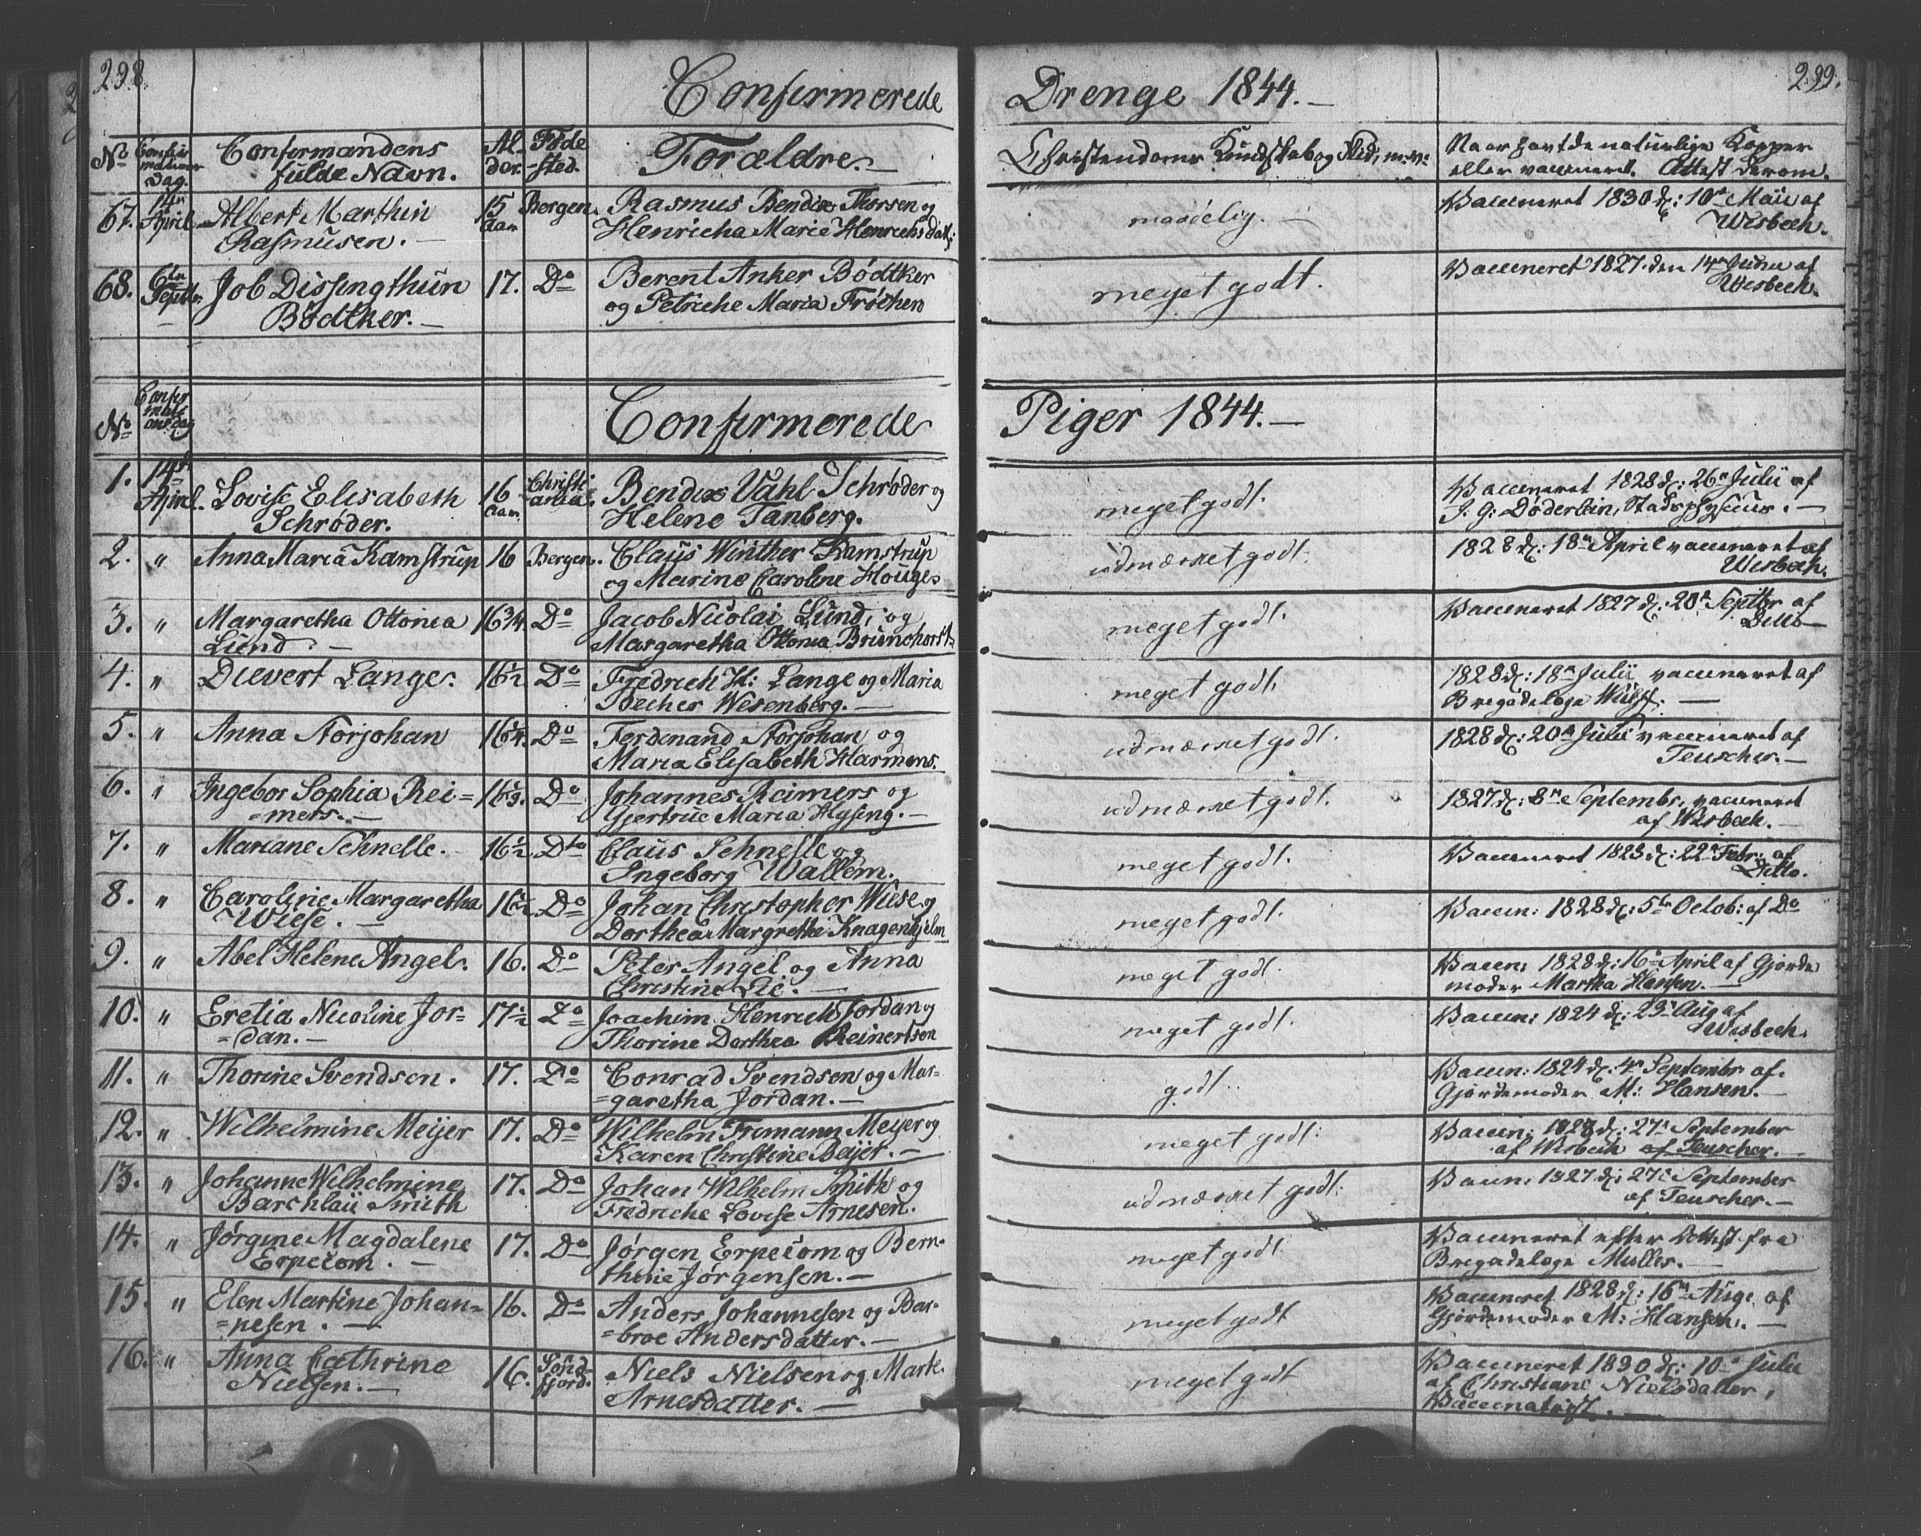 298. 299.
Confirmerede Drenge 1844.
No Confirmations Dag. Confirmandens fulde Navn. Alder. Føde sted. Forældre. Christendoms Kundskab og Flid, m. v: Naar havt de naturlige Kopper
eller vaccineret. Attest derom.
67. 14de April Albert Marthin 15 Aar Bergen. Rasmus Bendix Thorsen og maadelig. Vaccineret 1830 d: 10de Maii af
Rasmusen. Henricha Marie Henrichsdatt: Wisbech.
68. 6te Septbr. Job Dissingthun 17. Do Berent Anker Bødtker meget godt. Vaccineret 1827 den 14de Junii af
Bødtker. og Petriche Maria Frøchen Wisbech.
No Confirmations Dag Confirmerede Piger 1844.
1. 14de April. Lovise Elisabeth 16 Aar. Christiania Bendix Vahl Schrøder og meget godt. Vaccineret 1828 d: 26de Julii af
Schrøder. Helene Tanberg. J. G. Døderlein, Stadsphysicus.
2. " Anna Maria Kamstrup 16 Bergen. Claus Winther Kamstrup udmærket godt. 1828 d: 18de April vaccineret af
og Marine Caroline Houge Wisbech.
3. " Margaretha Ottonia 16 3/4 Do Jacob Nicolai Lund, og meget godt. Vaccineret 1827 d: 20de Septbr af
Lund. Margaretha Ottonia Brunchorst Ditto
4. " Dievert Lange. 16 1/2 Do Fredrich H: Lange og Maria meget godt. 1828 d: 18de Julii vaccineret af
Becher Wesenberg. Bregadelæge
5. " Anna Storjohan 16 1/4. Do Ferdinand Storjohan og udmærket godt. 1828 d: 20de Julii vaccineret af
Maria Elisabeth Harmens. Teuscher.
6. " Ingebor Sophia Rei= Do Johannes Reimers og udmærket godt. 1827 d: 8de Septembr. vaccineret
=mers. Gjertrue Maria Hysing. af Wisbech.
7. " Mariane Schnelle. 16 1/2 Dto Claus Schnelle og meget godt. Vaccineret 1828 d: 22de Febr: af
Ingeborg Wallem. Ditto.
8. " Caroline Margaretha 16 1/2 Do Johan Christopher Wiese og meget godt. Vaccin: 1828 d: 5te Octob: af Do
Wiese. Dorthea Margrethe Knagenhjelm
9. " Abel Helene Angel. 16. Do Peter Angel og Anna meget godt. Vaccin: 1828 d: 16de April af Gjorde
Christine Lie. moder Martha Hansen.
10. " Eretia Nicoline Jor= 17 1/2 Do Joachim Henrich Jordan og meget godt. Vaccin: 1824 d: 23de Aug af
=dan. Thorine Dorthea Reinertsen Wisbech.
11. " Thorine Svendsen. 17. Do Conrad Svendsen og Mar= godt. Vaccin: 1824 d: 4de Septembr af
=garetha Jordan. Gjordemoder M: Hansen.
12. " Wilhelmine Meijer 17. Do Wilhelm Frimann Meijer og meget godt. Vaccin: 1828 d: 27de September
Karen Christine Beijer. af Wisbech af Teuscher.
13. " Johanne Wilhelmine 17. Do Johan Wilhelm Smith og udmærket godt. Vaccin: 1827 d: 27de September
Barchlau Smith Fredriche Lovise Arnesen. af Teuscher.
14. " Jørgine Magdalene 17. Do Jørgen Erpecom og Bern= meget godt. Vaccineret efter Attest fra
Erpecom. thine Jørgensen. Bregadelæge Muller.
15. " Elen Martine Johan= 16. Do Anders Johannesen og Bar= meget godt Vaccineret 1828 d: 16de Aug: af
=nesen. =broe Andersdatter. Gjordemoder M: Hansen.
16. " Anna Cathrine 16. Søndfjord. Niels Nielsen og Marte meget godt Vaccineret 1830 d: 10de Julii
Nielsen. Arnesdatter. af Christiane Nielsdatter,
Vaccinatrist.